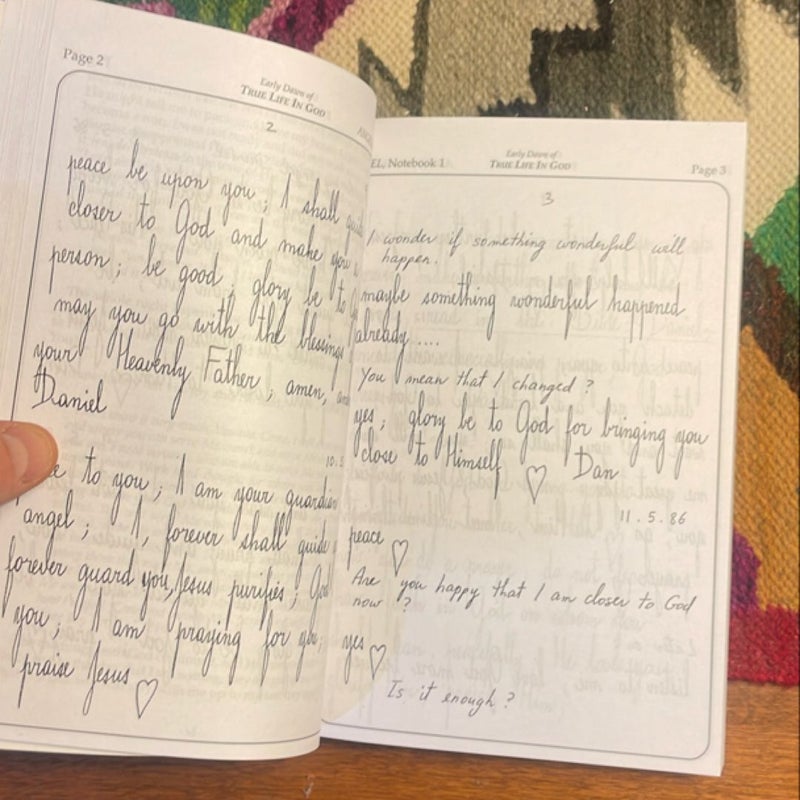 Page 2
Early Dawn of
TRUE LIFE IN GOD
2
peace be upon you ; I shall guide
closer to God and make you a
person ; be good ; glory be to
may you go with the blessings
your Heavenly Father ; amen,
Daniel
10.5
to you ; I am your guardian
angel ; I, forever shall guide
forever guard you, Jesus purifies ; God
you ; I am praying for you ;
praise Jesus ♡
EL, Notebook 1
Early Dawn of
TRUE LIFE IN GOD
Page 3
3
I wonder if something wonderful will
happen.
maybe something wonderful happened
already ....
You mean that I changed ?
yes ; glory be to God for bringing you
close to Himself ♡ Dan
11.5.86
peace ♡
Are you happy that I am closer to God
now ?
yes ♡
Is it enough ?